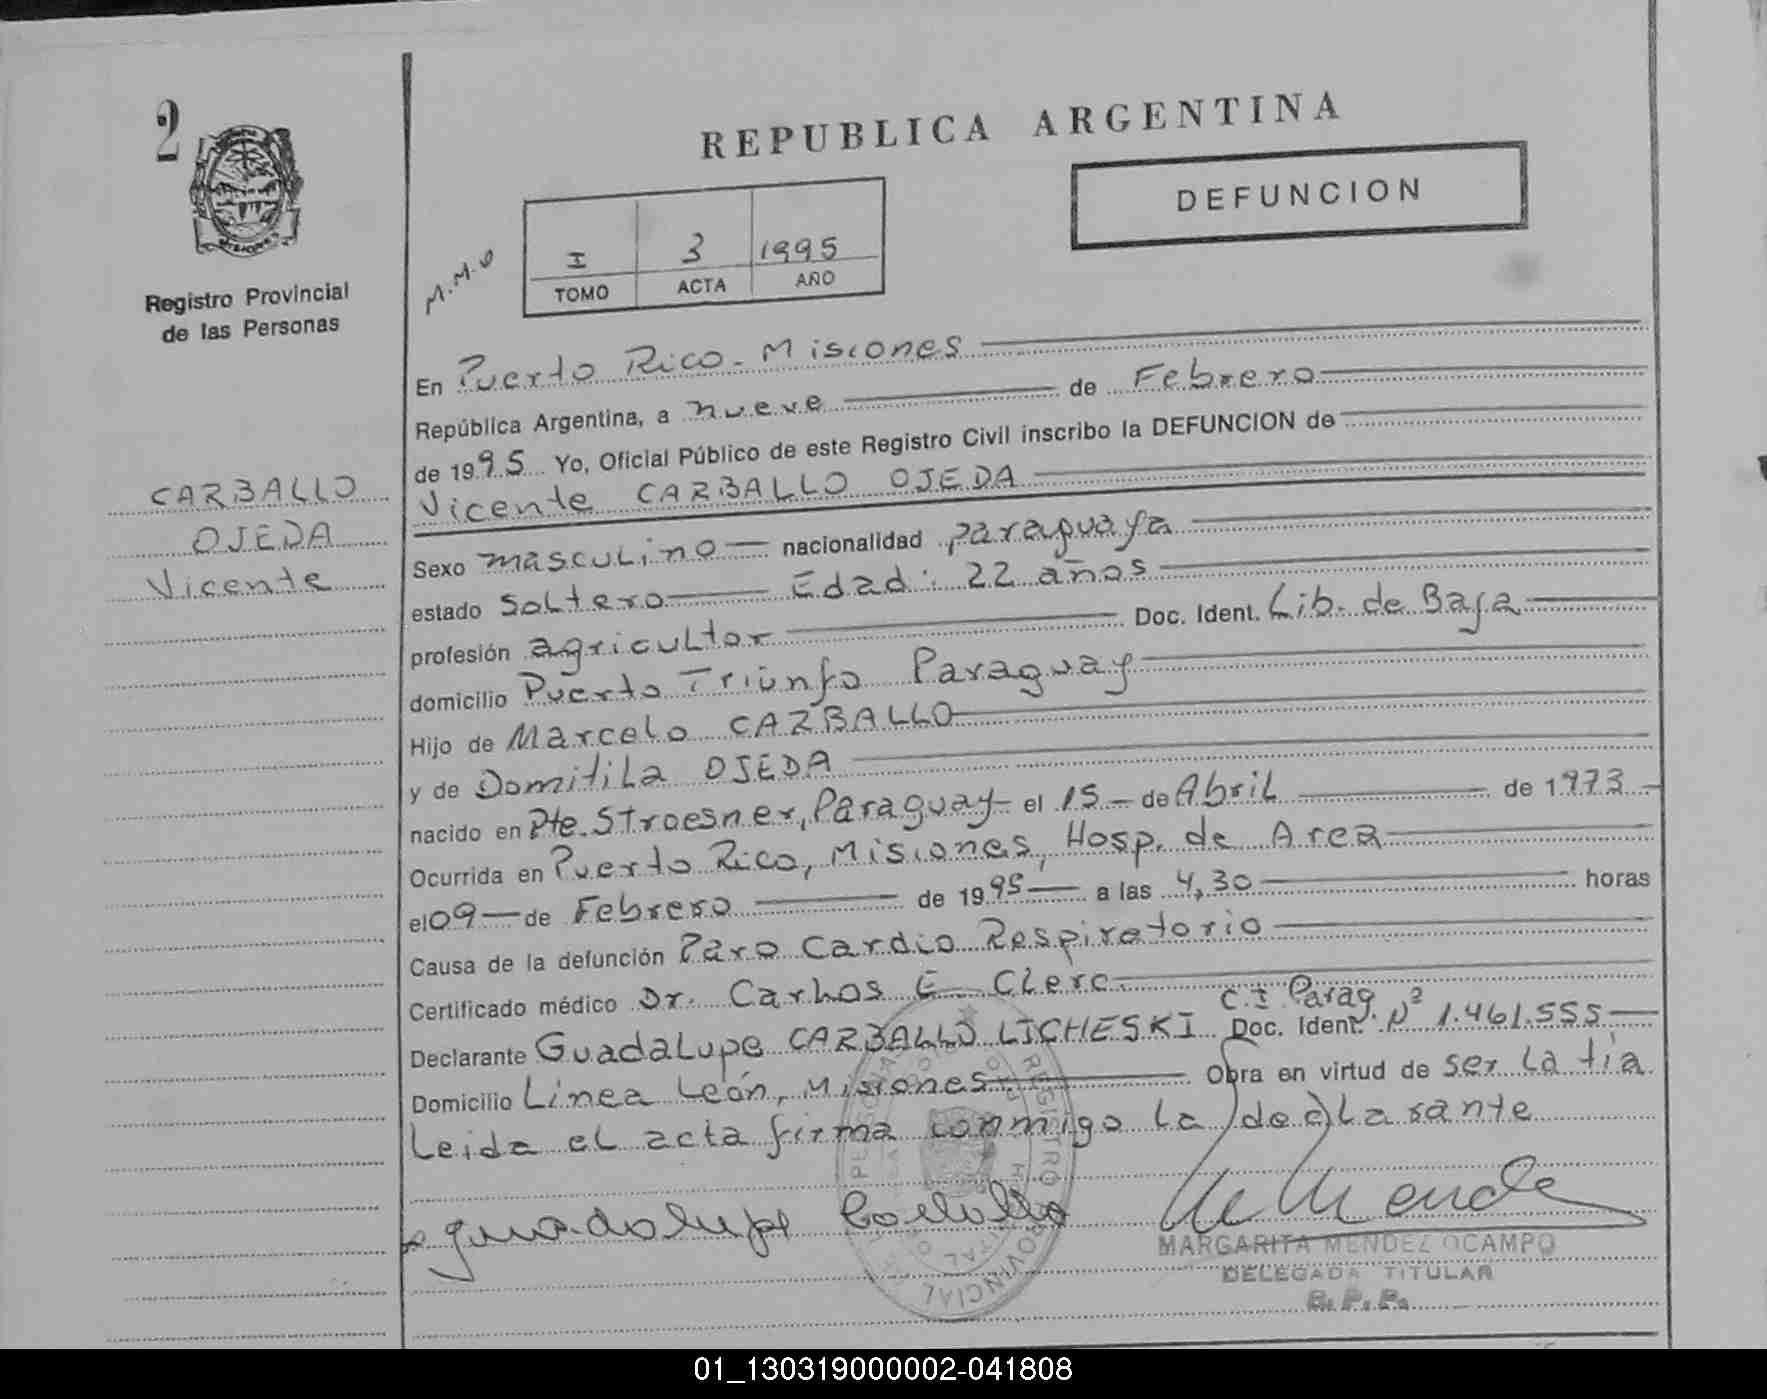 2
Registro Provincial
de las Personas
CARBALLO
OJEDA
Vicente
REPUBLICA ARGENTINA
DEFUNCION
M.M.O
I 3 1995
TOMO ACTA AÑO
En Puerto Rico - Misiones
República Argentina, a nueve de Febrero
de 1995 Yo, Oficial Público de este Registro Civil inscribo la DEFUNCION de
Vicente CARBALLO OJEDA
Sexo masculino nacionalidad paraguaya
estado soltero Edad: 22 años
profesión agricultor Doc. Ident. Lib. de Baja
domicilio Puerto Triunfo Paraguay
Hijo de Marcelo CARBALLO
y de Domitila OJEDA
nacido en Pte. Stroesner, Paraguay el 15 de Abril de 1973
Ocurrida en Puerto Rico, Misiones, Hosp. de Area
el 09 de Febrero de 1995 a las 4,30 horas
Causa de la defunción Paro Cardio Respiratorio
Certificado médico Dr. Carlos E. Clerc
C.I Parag.
Declarante Guadalupe CARBALLO LICHESKI Doc. Ident. Nº 1.461.555
Domicilio Linea León, Misiones Obra en virtud de ser la tía.
Leida el acta firma conmigo la declarante
guadalupe Carballo
MARGARITA MENDEZ OCAMPO
DELEGADA TITULAR
R.P.P.
REGISTRO PROVINCIAL
01_130319000002-041808